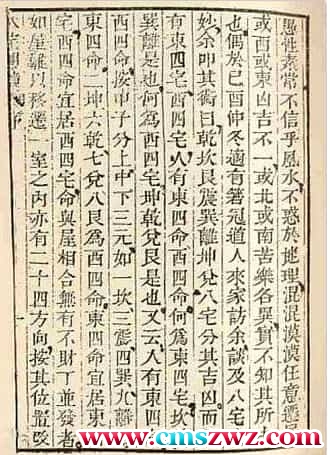 愚性素常不信乎風水不惑於地理混混漠漠任意遷居
或西或東凶吉不一或北或南苦樂各異實不知其所
也偶於己酉仲冬適有箬冠道人來家訪余談及八宅
妙余叩其術曰乾坎艮震巽離坤兌八宅分其吉凶而
有東四宅西四宅人有東四命西四命何為東四宅坎
巽離是也何為西四宅坤乾兌艮是也又云人有東四
西四命按甲子分上中下三元如一坎三震四巽九離
東四命二坤六乾七兌八艮為西四命東四命宜居東
宅西四命宜居西四宅命與屋相合無有不財丁並發者
如屋難以移遷一室之內亦有二十四方向按其位置
www.cmszwz.com